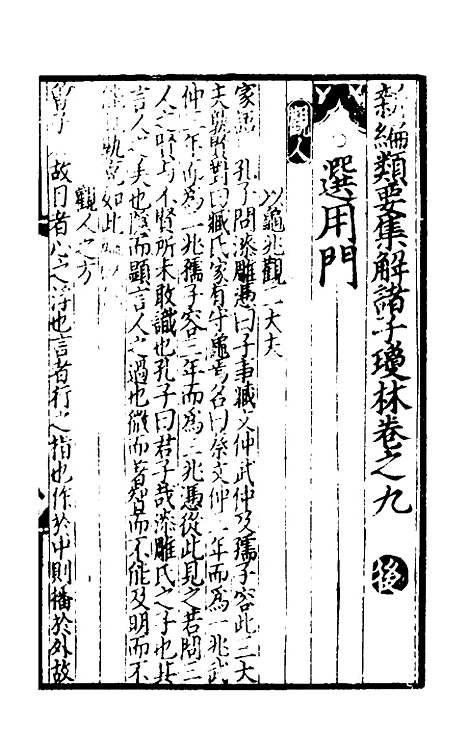 新編類要集解諸子瓊林卷之九 後
選用門
觀人
以龜兆觀三大夫
家語 孔子問漆雕憑曰子事臧文仲武仲及孺子容此三大
夫孰賢對曰臧氏家有守龜焉名曰蔡文仲三年而為一兆武
仲三年而為二兆孺子容三年而為三兆憑從此見之若問三
人之賢與不賢所未敢識也孔子曰君子哉漆雕氏之子也其
言人之美也隱而顯言人之過也微而著智而不能及明而不
如此
觀人之方
曾子 故目者心之浮也言者行之指也作於中則播於外故